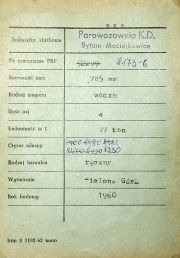 PKP
Jednostka służbowa
Parowozownia K.D.
Bytom Maciejkowice
Nr inwentarza PKP 8173-6
Szerokość toru 785 mm
Rodzaj wagonu wddxh
Ilość osi 4
Ładowność w t. 17 ton
Ciężar własny 8230
Rodzaj hamulca ręczny
Wytwórnia Zielona Góra
Rok budowy 1960